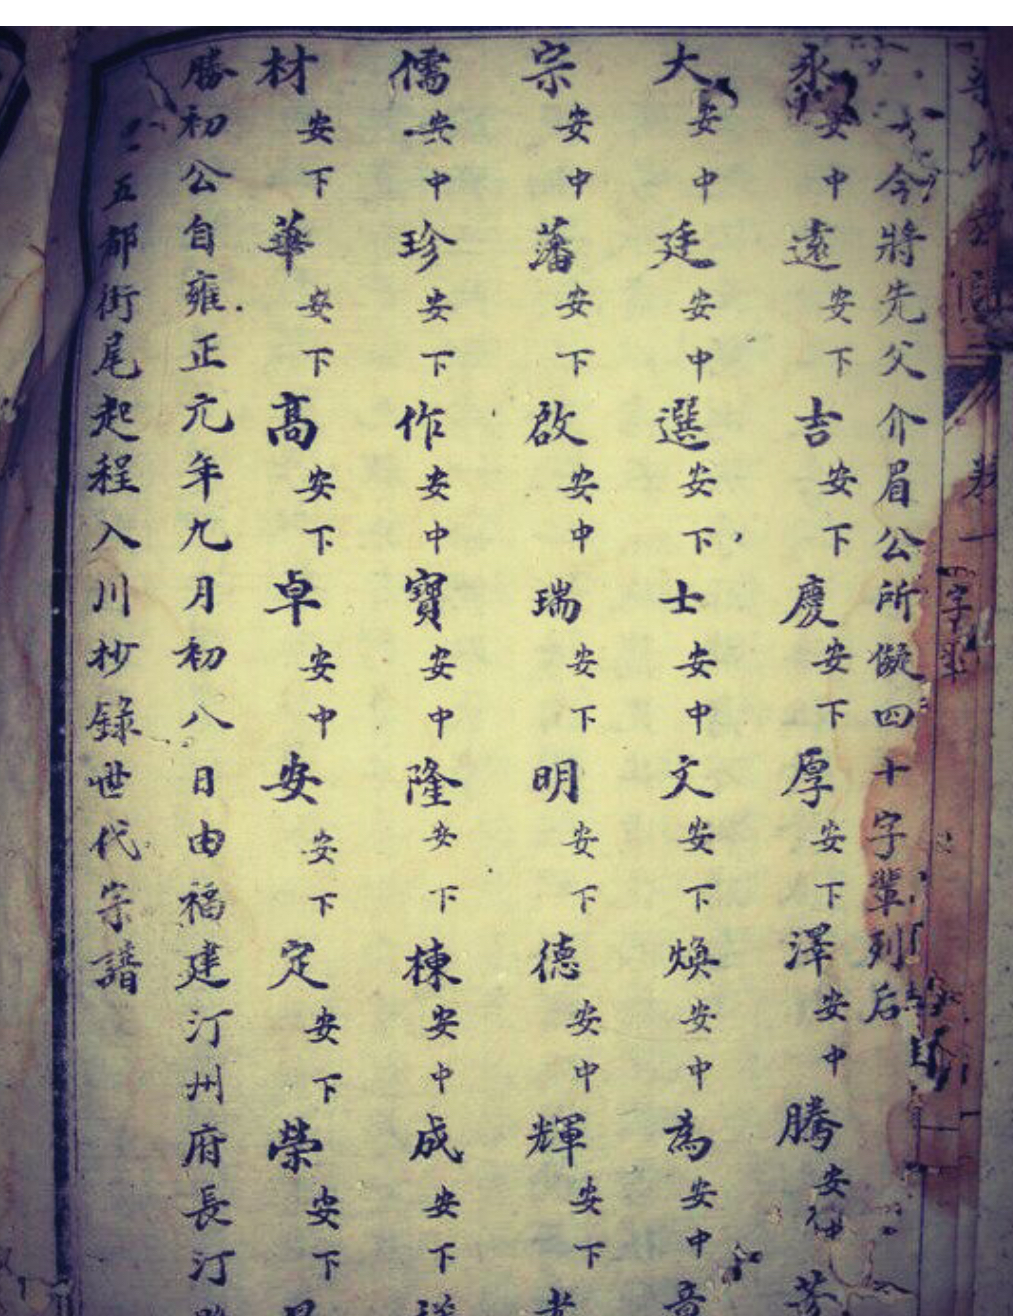 今將先父介眉公所儗四十字輩列后
永安中遠安下吉安下慶安下厚安下澤安中騰安
大安中廷安中選安下士安中文安下煥安中為安中
宗安中藩安下啟安中瑞安下明安下德安中輝安下
儒安中珍安下作安中寶安中隆安下棟安中成安下
材安下華安下高安下卓安中安安下定安下榮安下
勝初公自雍正元年九月初八日由福建汀州府長汀
五都街尾起程入川抄錄世代宗譜